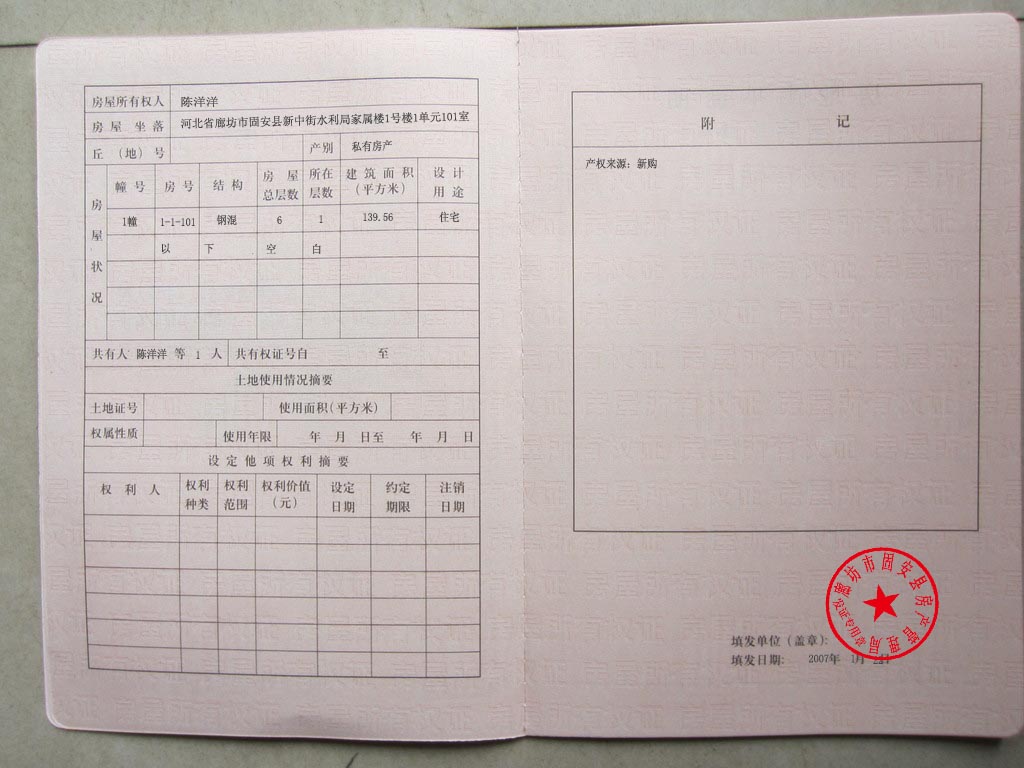 房屋所有权人 陈洋洋
房屋坐落 河北省廊坊市固安县新中街水利局家属楼1号楼1单元101室
丘（地）号 产别 私有房产
房屋状况
幢号 房号 结构 房屋总层数 所在层数 建筑面积（平方米） 设计用途
1幢 1-1-101 钢混 6 1 139.56 住宅
以 下 空 白
共有人 陈洋洋 等 1 人 共有权证号自 至
土地使用情况摘要
土地证号 使用面积(平方米)
权属性质 使用年限 年 月 日至 年 月 日
设定他项权利摘要
权利人 权利种类 权利范围 权利价值（元） 设定日期 约定期限 注销日期
附 记
产权来源：新购
廊坊市固安县房产管理局
填发单位（盖章）：
填发日期： 2007年 1月